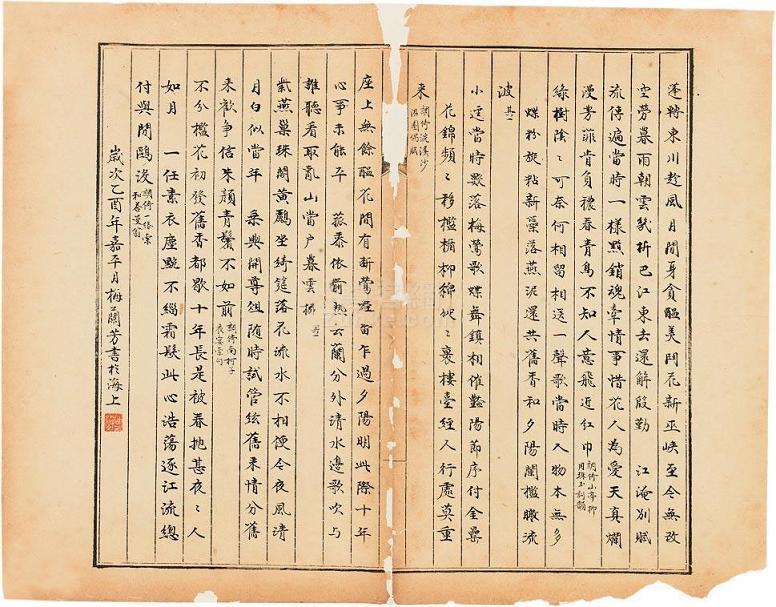 蓬轉東川趁風月閒身貪醞美門花新巫峽至今無改
空勞暮雨朝雲幾折巴江東去還解殷勤　江淹別賦
流傳遍當時一樣黯銷魂牽情事惜花人為愛天真爛
漫芳菲肯負禮春青鳥不知人意飛近紅巾
綠樹陰陰可奈何相留相送一聲歌當時人物本無多
蝶粉旋粘新藁落燕泥還共舊香和夕陽闌檻瞰流
波 其一
小逕當時數落梅鶯歌蝶舞鎮相催豔陽節序付金罍
花錦頻頻移檻楯柳綿欸欸裹樓臺經人行處莫重
來 調倚浣溪沙
座上無餘醞花間有斬鶯喧昏乍過夕陽明此際十年
心事未能平　菰黍依前熟雲蘭分外清水邊歌吹與
誰聽看取亂山當戶暮雲橫 其二
紫燕巢珠閣黃鸝坐綺筵落花流水不相便今夜風清
月白似當年　乘興開尊俎隨時試管絃舊來情分舊
來歡爭信朱顏青鬢不如前 調倚南柯子
不分檻花初發舊香都歇十年長是被春拋甚夜夜人
如月　一任素衣塵黦不緇霜鬢此心浩蕩逐江流總
付與閒鷗沒 調倚一絡索
歲次乙酉年嘉平月梅蘭芳書於海上